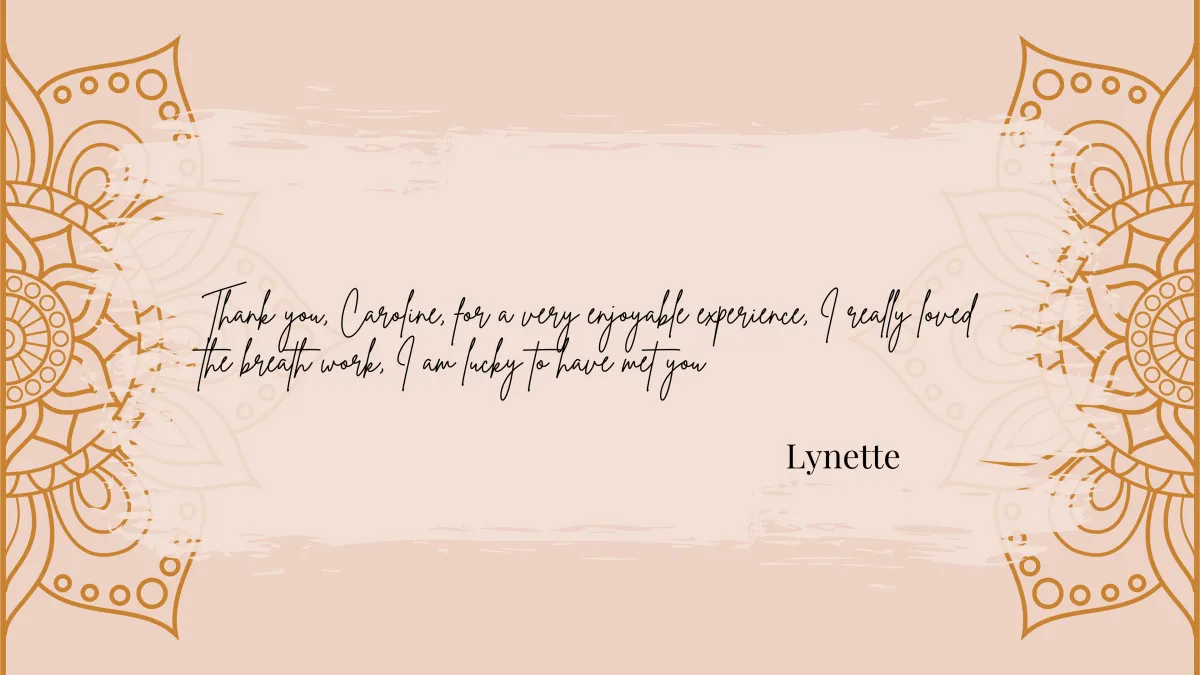 Thank you, Caroline, for a very enjoyable experience, I really loved
the breath work, I am lucky to have met you
Lynette